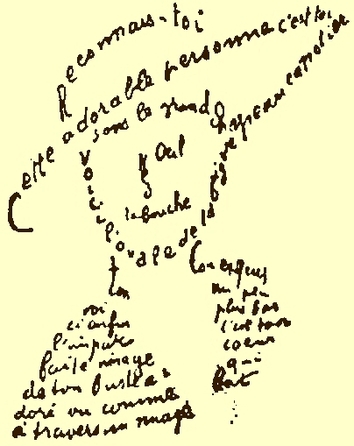 Reconnais-toi
Cette adorable personne c'est toi
sous le grand chapeau canotier
Œil
Nez
la bouche
Voici l'ovale de ta figure
Ton cou exquis
voi
ci enfin
l'impar
faite image
de ton buste a
doré vu comme
à travers un nuage
un peu
plus bas
c'est ton
coeur
qui
bat